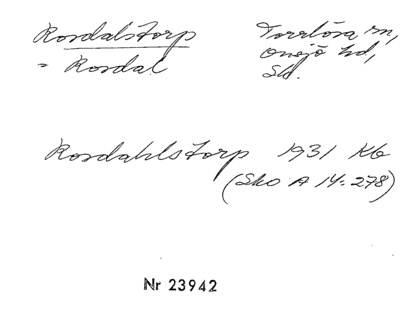 Rosdalstorp Torrlösa sn,
= Rosdal Onsjö hd,
Sk.
Rosdahlstorp 1931 Kb
(Sko A 14:278)
Nr 23942